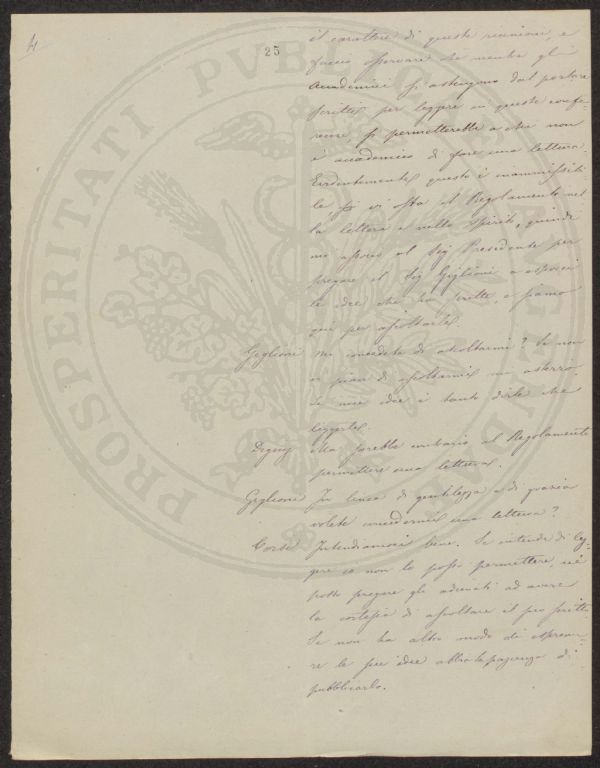 4
25
il carattere di queste riunioni, e
faccio osservare che mentre gli
Accademici si astengono dal portare
scritti per leggere in queste confe-
renze, si permetterebbe a chi non
è accademico di fare una lettura.
Evidentemente questo è inammissibi-
le se si sta al Regolamento nel
la lettera e nello spirito, quindi
mi associo al Sig Presidente per
pregare il Sig Giglioni a esporci
le idee che ha scritte, e siamo
qui per ascoltarle.
Giglioni Mi concedete di ascoltarmi? Se non
vi piace di ascoltarmi mi asterrò.
Le mie idee è tanto dirle che
leggerle.
Digny Ma sarebbe contrario al Regolamento
permettere una lettura.
Giglioni In linea di gentilezza e di grazia
volete concedermi una lettura?
Corsi Intendiamoci bene. Se intende di leg-
gere io non lo posso permettere, nè
posso pregare gli adunati ad avere
la cortesia di ascoltare il suo scritto.
Se non ha altro modo di esprime-
re le sue idee abbia la pazienza di
pubblicarlo.
PROSPERITATI PVBLICAE AVGENDAE